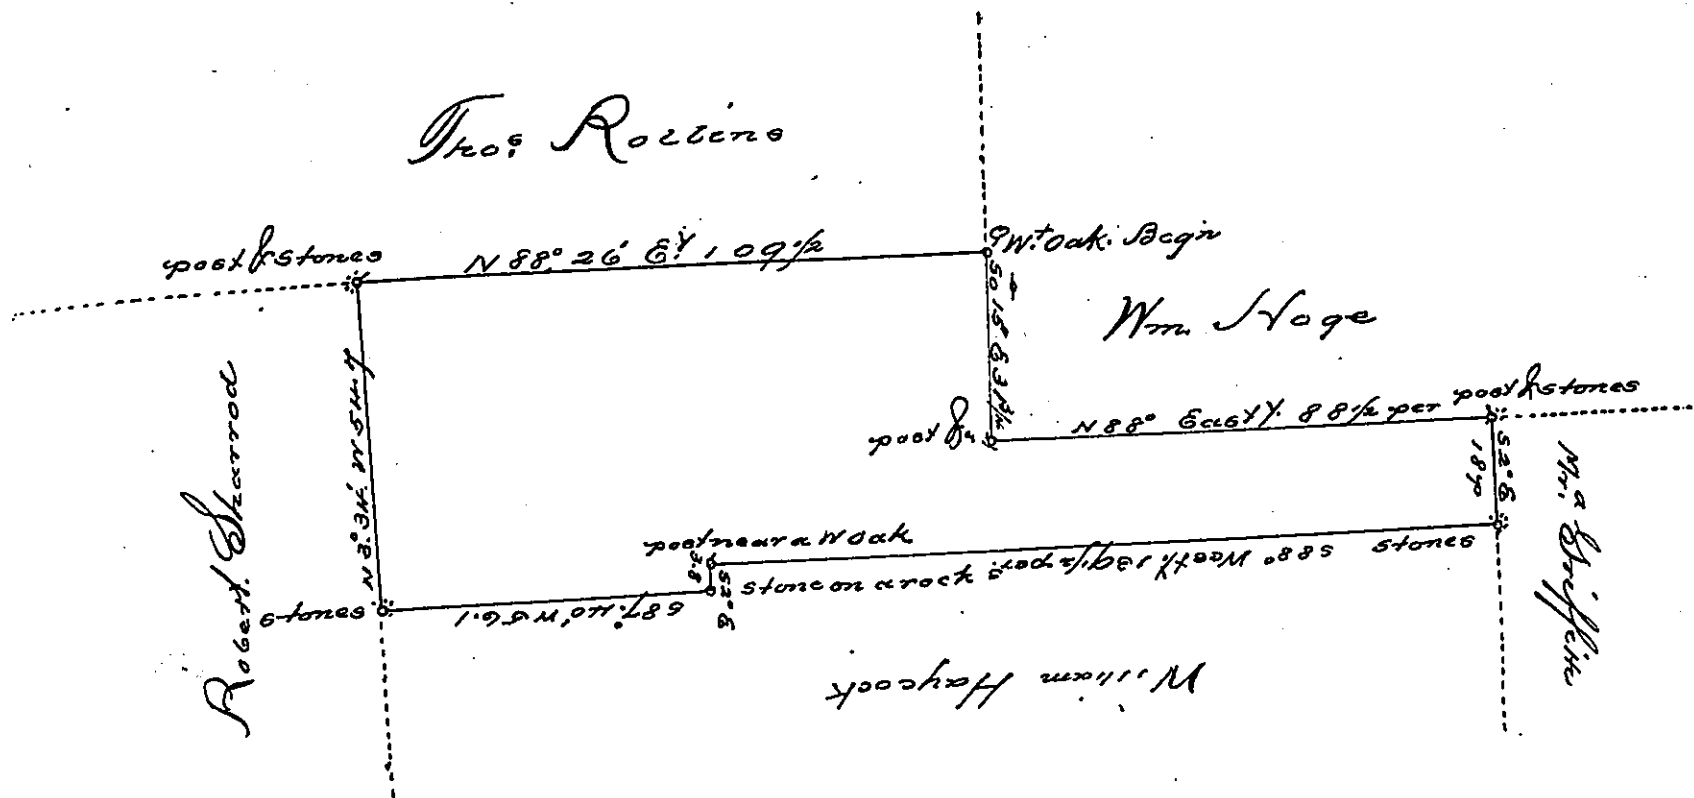 Thos. Rollins
post & stones
N 88° 26' E.y 109 1/2
Wt. Oak. Begn
S0 15 E 31 3/4
Wm. Hoge
post &c
N 88° Easty. 88 1/2 per
post & stones
S 2° E
18 p
Mr.
Griffith
stones
S 88° Westy 139 1/2 per
post near a W Oak
S 2° E
3.8
stone on a rock
S 87° 40' W 56.1
stones
N 2° 34' W
Robert. Sharrod
William Haycock